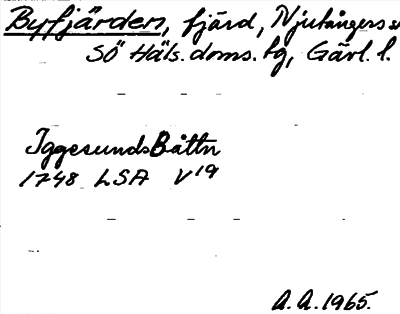 Byfjärden, fjärd, Njutångers s
SÖ Häls. doms. fg, Gävl. l.
IggesundsBåttn
1748 LSA V19
A. A. 1965.